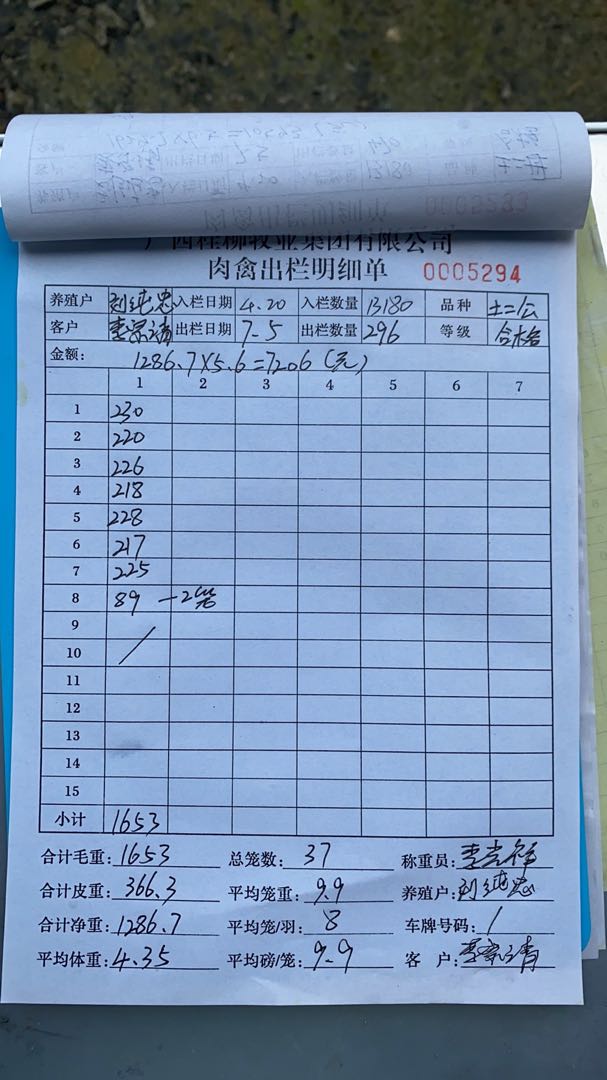 广西桂柳牧业集团有限公司
肉禽出栏明细单 0005294
养殖户 刘纯忠 入栏日期 4.20 入栏数量 13180 品种 土二/公
客户 出栏日期 7.5 出栏数量 296 等级 合格
金额: 1286.7×5.6=7206(元)
1 2 3 4 5 6 7
1 230
2 220
3 226
4 218
5 228
6 217
7 225
8 89 —2笼
9
10 /
11
12
13
14
15
小计 1653
合计毛重: 1653 总笼数: 37 称重员:
合计皮重: 366.3 平均笼重: 9.9 养殖户: 刘纯忠
合计净重: 1286.7 平均笼/羽: 8 车牌号码: /
平均体重: 4.35 平均磅/笼: 9.9 客 户: